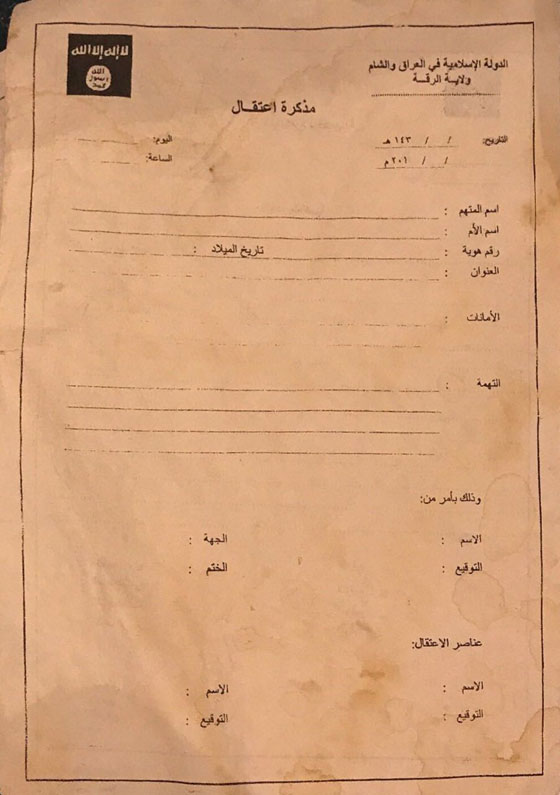 لا إله إلا الله
الله
رسول
محمد
الدولة الإسلامية في العراق والشام
ولايـة الرقـة
مذكرة اعتقـال
التاريخ: / / ١٤٣ هـ
/ / ٢٠١ م
اليوم:
الساعة:
اسم المتهم :
اسم الأم :
رقم هوية : تاريخ الميلاد :
العنوان :
الأمانات :
التهمة :
وذلك بأمر من:
الاسم : الجهة :
التوقيع : الختم :
عناصر الاعتقال:
الاسم : الاسم :
التوقيع : التوقيع :